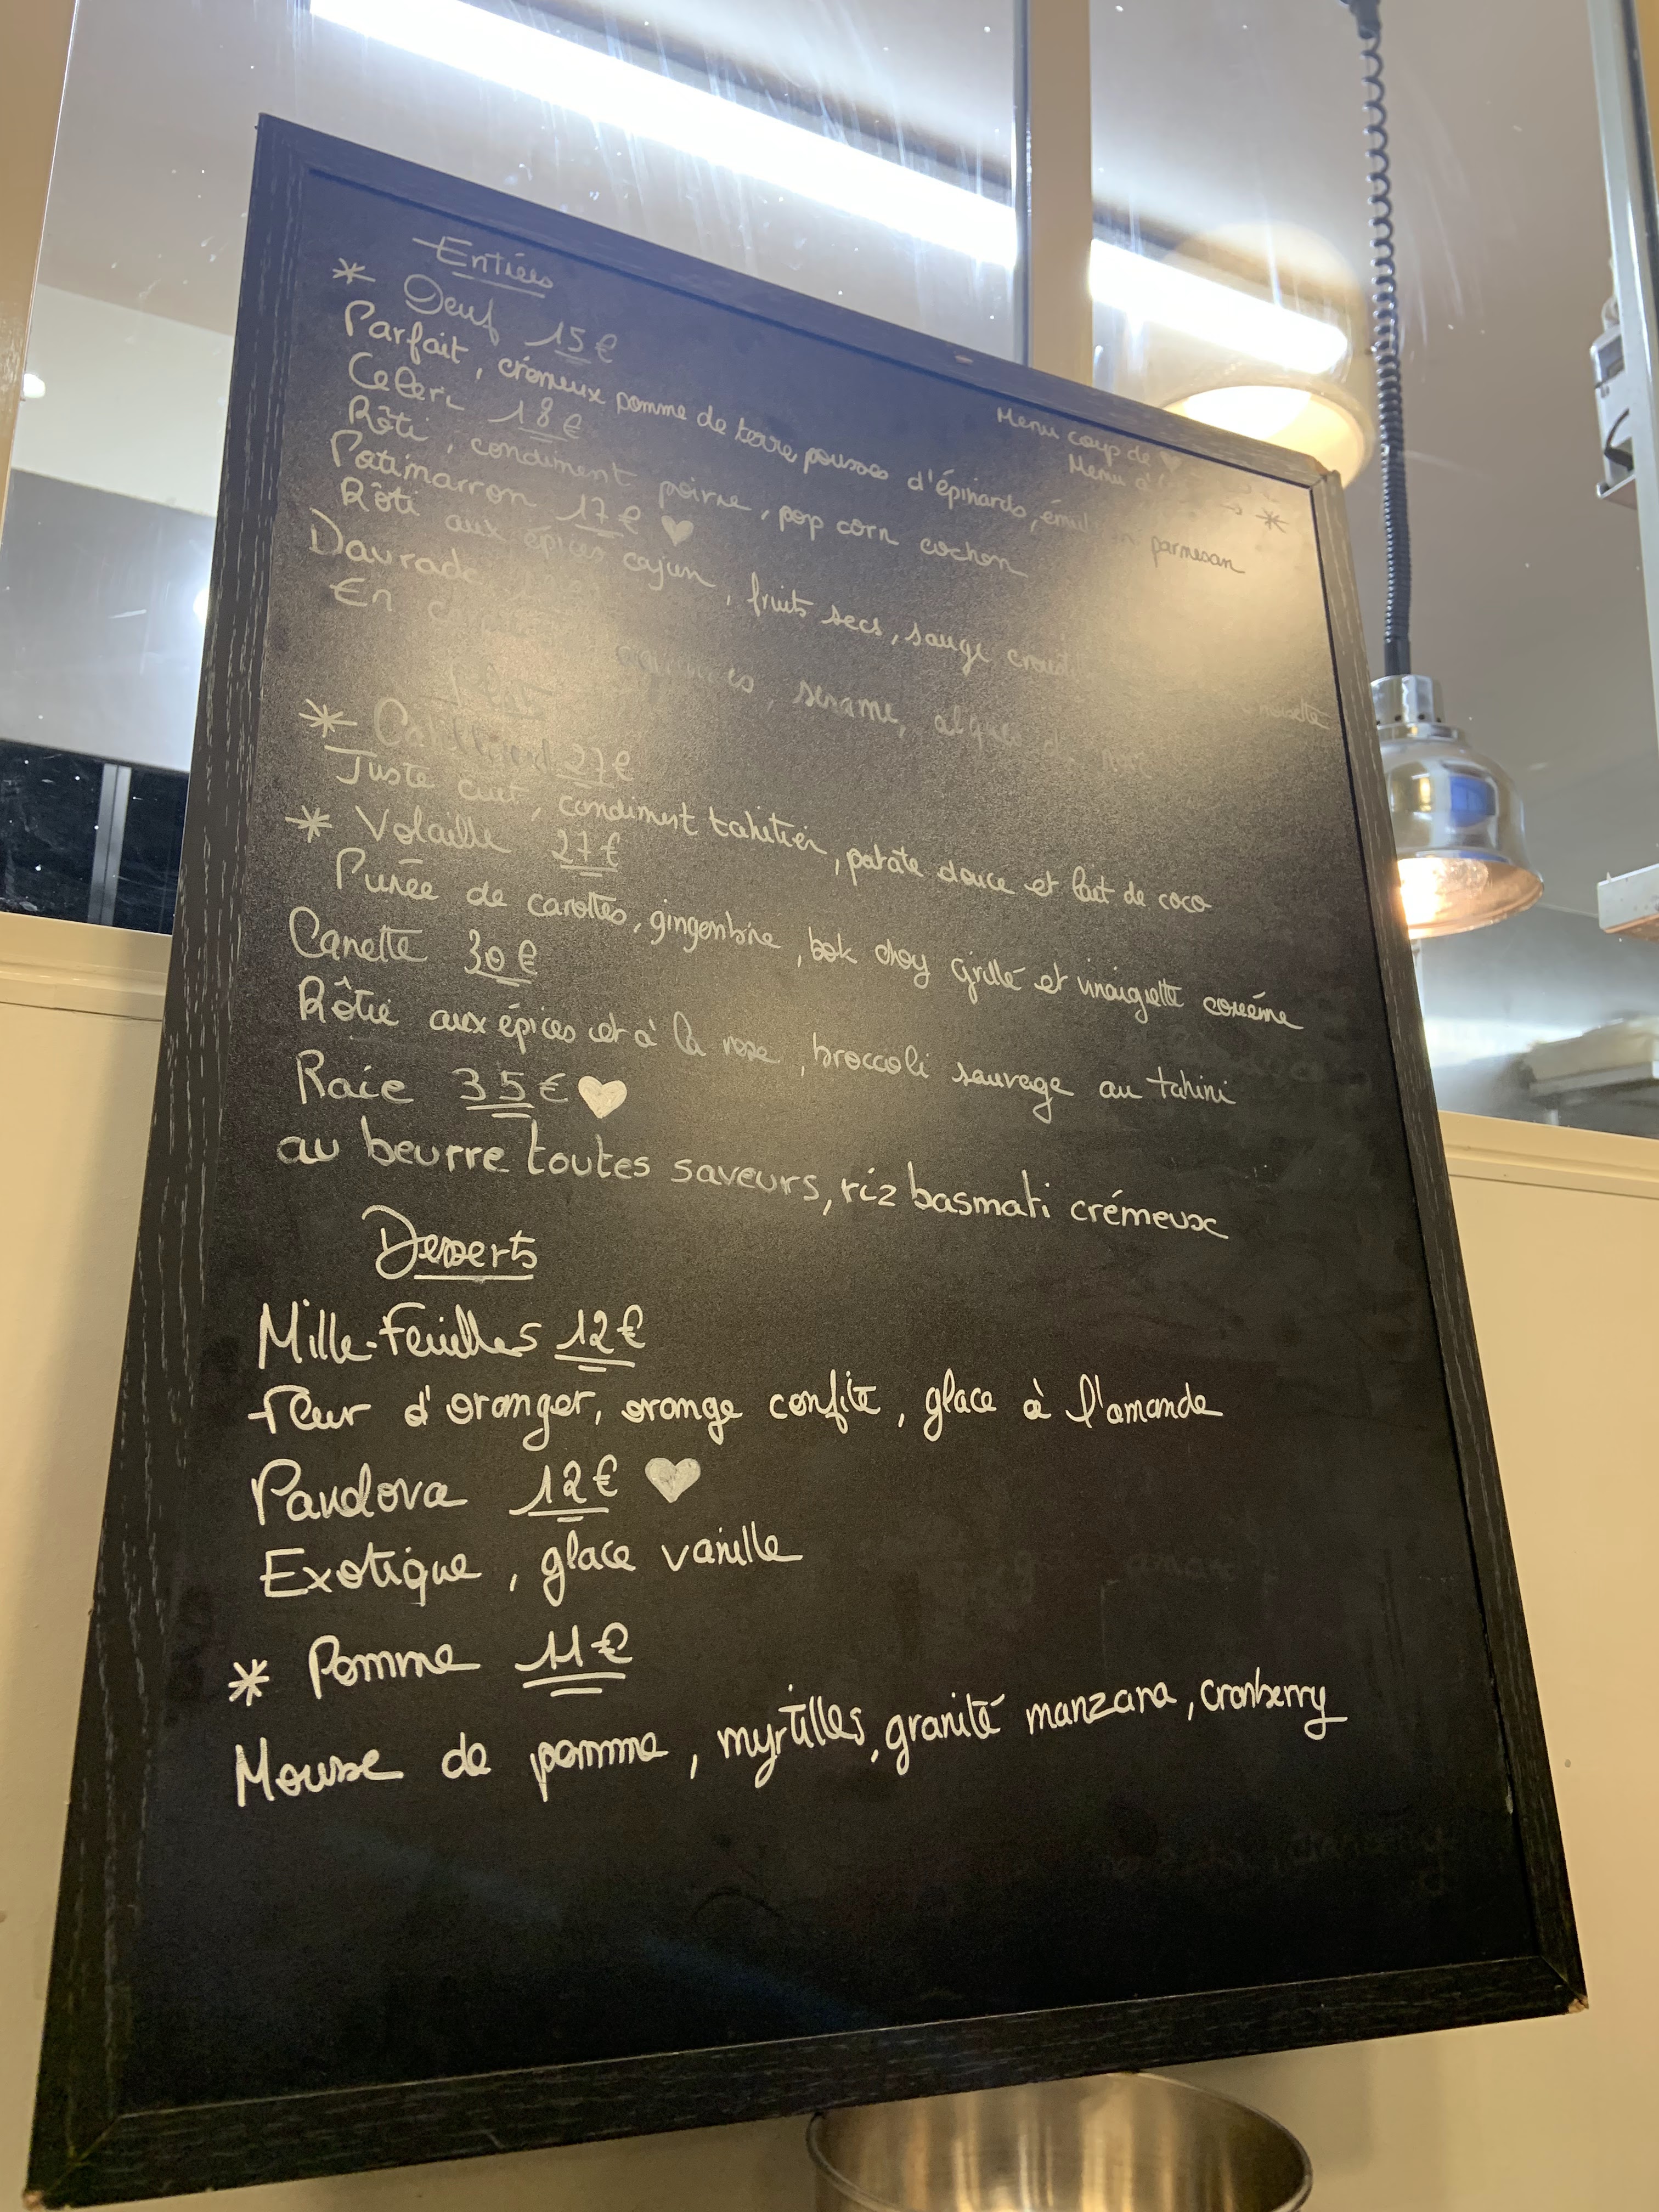 Entrées
* Oeuf 15€
Parfait, crémeux pomme de terre, pousses d'épinards, parmesan
Celeri 18€
Rôti, condiment poivre, pop corn cochon
Potimarron 17€ ♥
Rôti aux épices cajun, fruits secs, sauge noisette
Daurade
En sésame, algues
Menu coup de ♥
Menu *
Plats
* Cabillaud 27€
Juste cuit, condiment tahitien, patate douce et lait de coco
* Volaille 27€
Purée de carottes, gingembre, bok choy grillé et vinaigrette coréene
Canette 30€
Rôtie aux épices et à la rose, broccoli sauvage au tahini
Raie 35€ ♥
au beurre toutes saveurs, riz basmati crémeux
Desserts
Mille-Feuilles 12€
fleur d'oranger, orange confite, glace à l'amande
Pavlova 12€ ♥
Exotique, glace vanille
* Pomme 11€
Mousse de pomme, myrtilles, granité manzana, cranberry